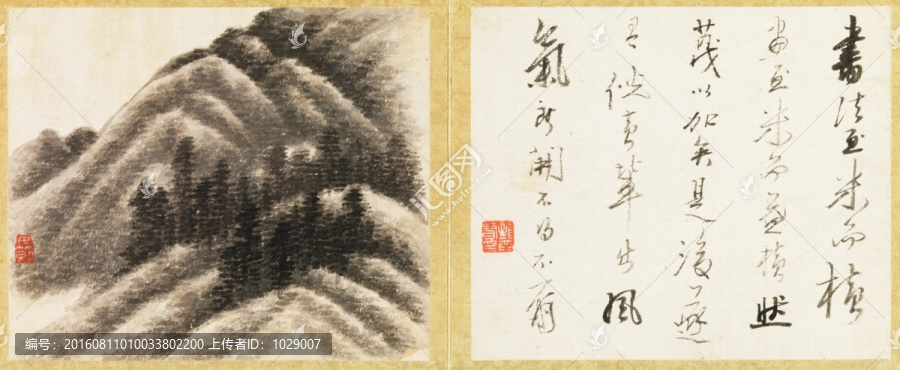 書法至米而橫
畫至米而益橫然
蔑以加矣是後遂
有倪黃輩出風
氣所開不得不爾
编号:20160811010033802200 上传者ID:1029007